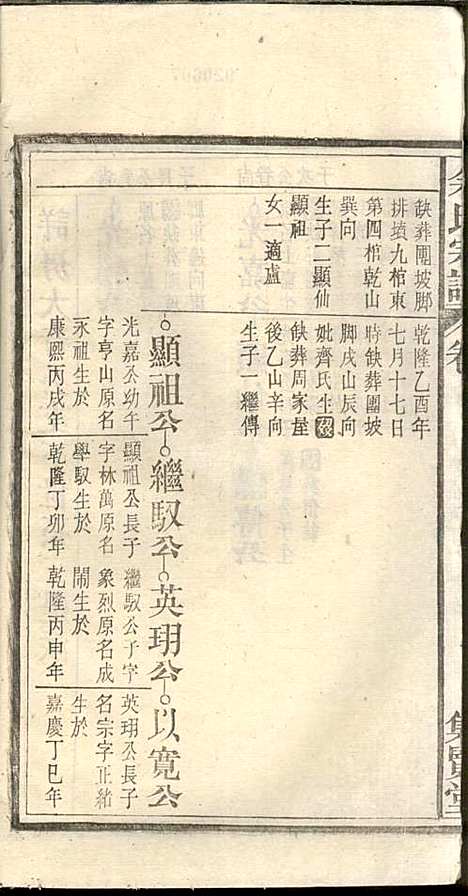 余氏宗譜
卷
集賢堂
缺葬團坡脚
排墳九棺東
第四棺乾山
巽向
生子二顯仙
顯祖
女一適盧
乾隆乙酉年
七月十七日
時缺葬團坡
脚戌山辰向
妣齊氏生歿
缺葬周家屋
後乙山辛向
生子一繼傳
顯祖公
光嘉公幼子
字亨山原名
永祖生於
康熙丙戌年
繼馭公
顯祖公長子
字林萬原名
舉馭生於
乾隆丁卯年
英玥公
繼馭公子字
象烈原名成
開生於
乾隆丙申年
以寬公
英玥公長子
名宗字正緒
生於
嘉慶丁巳年